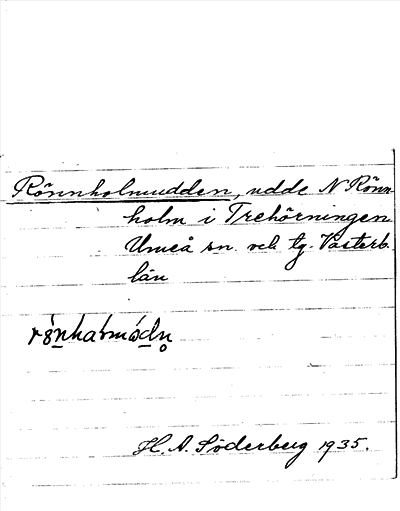 Rönnholmudden, udde N Rönn-
holm i Trehörningen
Umeå sn. och tg. Västerb.
län
H. A. Söderberg 1935.